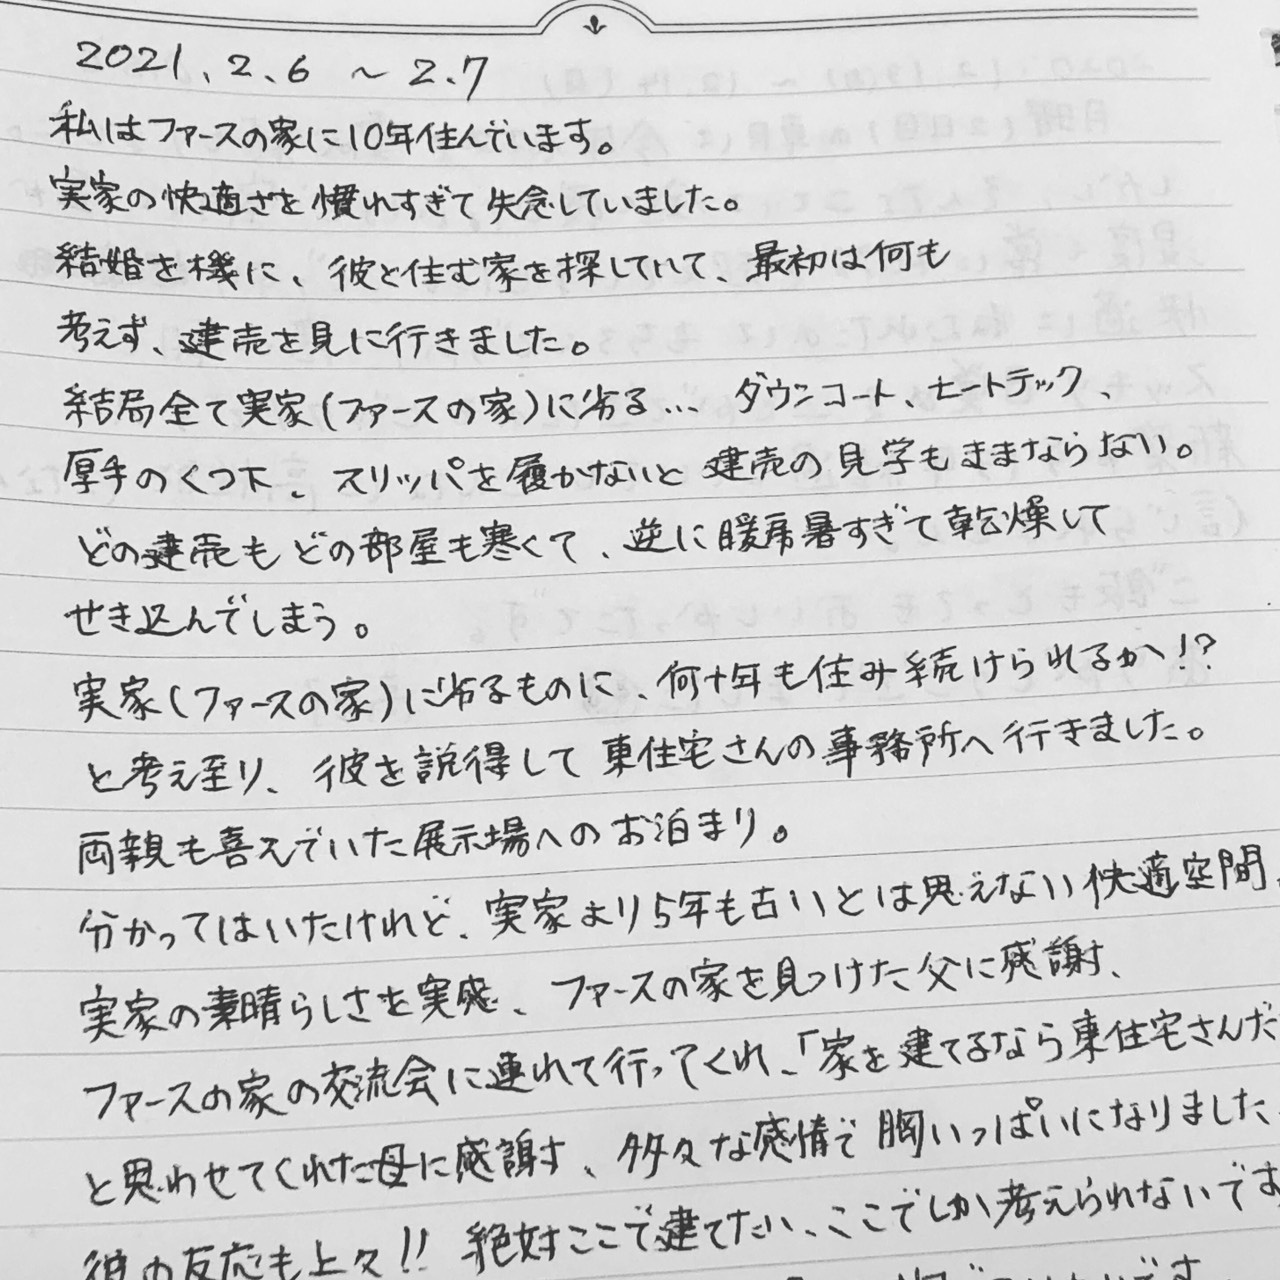 2021.2.6 ～ 2.7
私はファースの家に10年住んでいます。
実家の快適さを慣れすぎて失念していました。
結婚を機に、彼と住む家を探していて、最初は何も
考えず、建売を見に行きました。
結局全て実家(ファースの家)に劣る… ダウンコート、ヒートテック、
厚手のくつ下、スリッパを履かないと建売の見学もままならない。
どの建売もどの部屋も寒くて、逆に暖房暑すぎて乾燥して
せき込んでしまう。
実家(ファースの家)に劣るものに、何十年も住み続けられるか!?
と考え至り、彼を説得して東住宅さんの事務所へ行きました。
両親も喜んでいた展示場へのお泊まり。
分かってはいたけれど、実家より5年も古いとは思えない快適空間、
実家の素晴らしさを実感、ファースの家を見つけた父に感謝、
ファースの家の交流会に連れて行ってくれ、「家を建てるなら東住宅さんだ
と思わせてくれた母に感謝、多々な感情で胸いっぱいになりました
彼の反応も上々!! 絶対ここで建てたい、ここでしか考えられないです